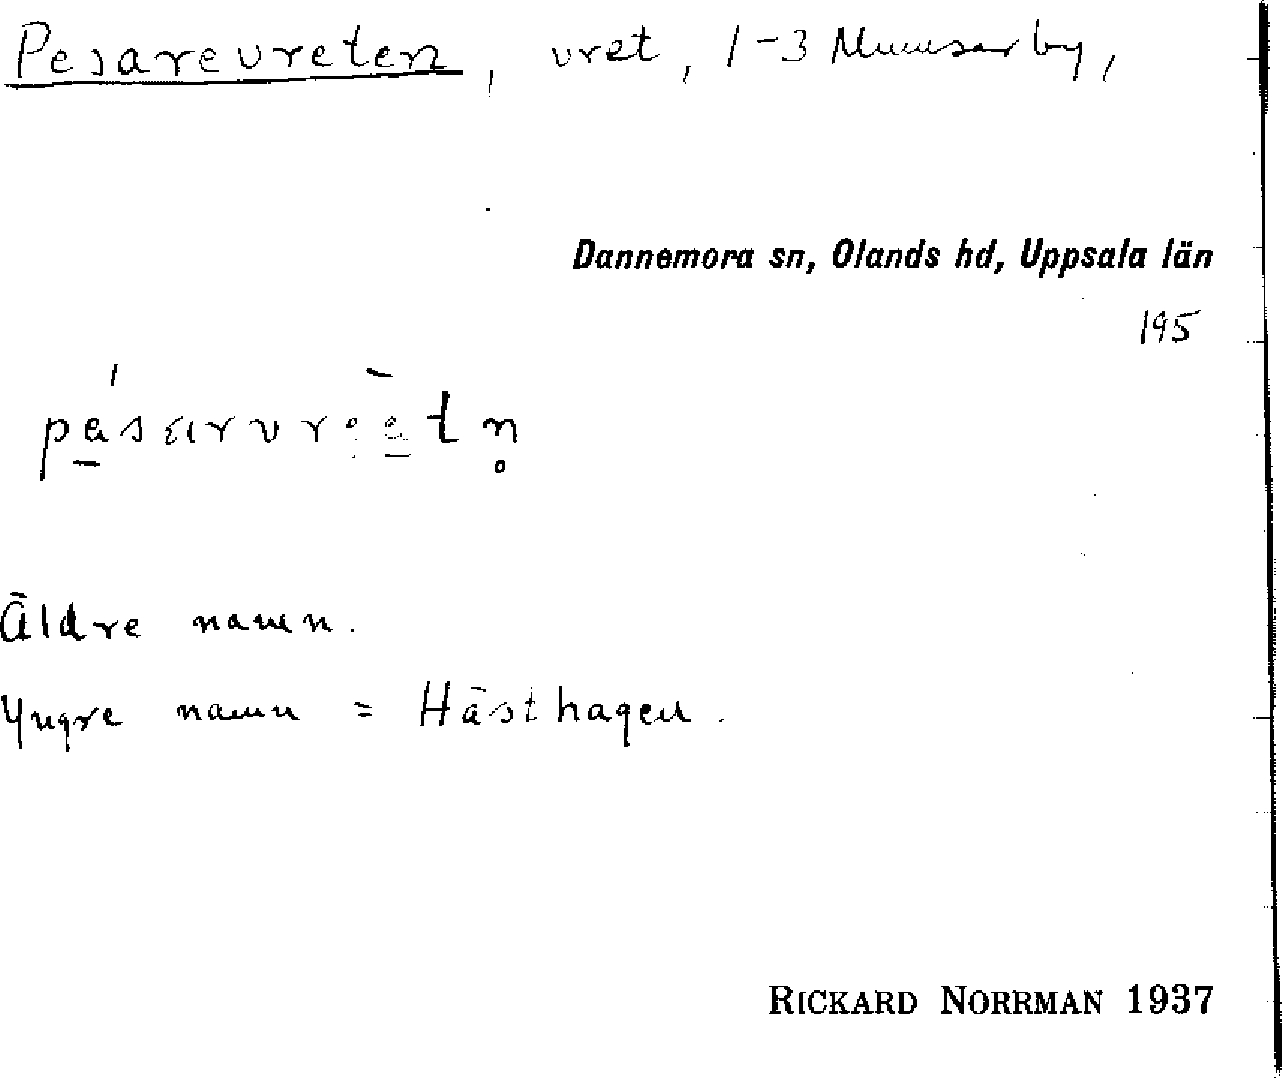 Pesarevreten, vret, 1-3 Mumsarby,
Dannemora sn, Olands hd, Uppsala län
195
Äldre namn.
Yngre namn = Hästhagen.
RICKARD NORRMAN 1937